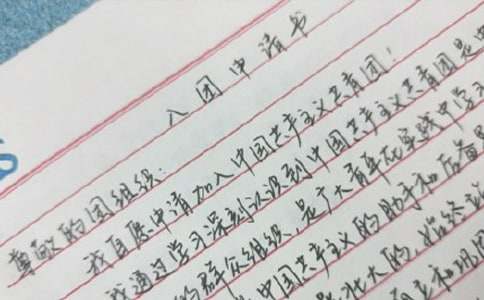 入团申请书
尊敬的团组织:
我自愿申请加入中国共产主义共青团!
我通过学习深刻认识到中国共产主义共青团是中
的群众组织,是广大青年在实践中学习
中国共产主义的助手和后备
壮大的,始终站